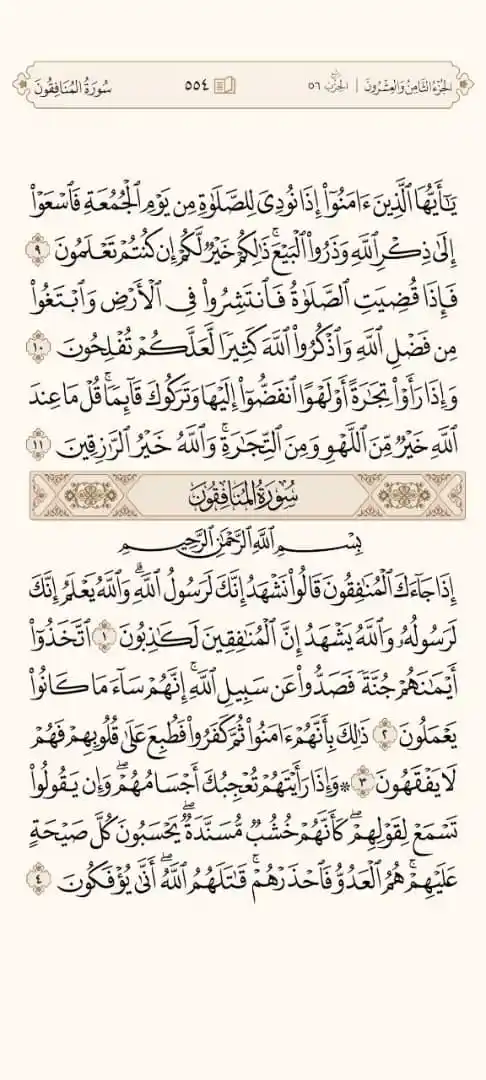 الجزء الثامن والعشرون | الحزب ٥٦ ٥٥٤ سورة المنافقون
يَـٰٓأَيُّهَا ٱلَّذِينَ ءَامَنُوٓا۟ إِذَا نُودِىَ لِلصَّلَوٰةِ مِن يَوْمِ ٱلْجُمُعَةِ فَٱسْعَوْا۟
إِلَىٰ ذِكْرِ ٱللَّهِ وَذَرُوا۟ ٱلْبَيْعَ ۚ ذَٰلِكُمْ خَيْرٌ لَّكُمْ إِن كُنتُمْ تَعْلَمُونَ ٩
فَإِذَا قُضِيَتِ ٱلصَّلَوٰةُ فَٱنتَشِرُوا۟ فِى ٱلْأَرْضِ وَٱبْتَغُوا۟
مِن فَضْلِ ٱللَّهِ وَٱذْكُرُوا۟ ٱللَّهَ كَثِيرًا لَّعَلَّكُمْ تُفْلِحُونَ ١٠
وَإِذَا رَأَوْا۟ تِجَـٰرَةً أَوْ لَهْوًا ٱنفَضُّوٓا۟ إِلَيْهَا وَتَرَكُوكَ قَآئِمًا ۚ قُلْ مَا عِندَ
ٱللَّهِ خَيْرٌ مِّنَ ٱللَّهْوِ وَمِنَ ٱلتِّجَـٰرَةِ ۚ وَٱللَّهُ خَيْرُ ٱلرَّٰزِقِينَ ١١
سُورَةُ المُنَافِقُونَ
بِسْمِ ٱللَّهِ ٱلرَّحْمَـٰنِ ٱلرَّحِيمِ
إِذَا جَآءَكَ ٱلْمُنَـٰفِقُونَ قَالُوا۟ نَشْهَدُ إِنَّكَ لَرَسُولُ ٱللَّهِ ۗ وَٱللَّهُ يَعْلَمُ إِنَّكَ
لَرَسُولُهُۥ وَٱللَّهُ يَشْهَدُ إِنَّ ٱلْمُنَـٰفِقِينَ لَكَـٰذِبُونَ ١ ٱتَّخَذُوٓا۟
أَيْمَـٰنَهُمْ جُنَّةً فَصَدُّوا۟ عَن سَبِيلِ ٱللَّهِ ۚ إِنَّهُمْ سَآءَ مَا كَانُوا۟
يَعْمَلُونَ ٢ ذَٰلِكَ بِأَنَّهُمْ ءَامَنُوا۟ ثُمَّ كَفَرُوا۟ فَطُبِعَ عَلَىٰ قُلُوبِهِمْ فَهُمْ
لَا يَفْقَهُونَ ٣ ۞ وَإِذَا رَأَيْتَهُمْ تُعْجِبُكَ أَجْسَامُهُمْ ۖ وَإِن يَقُولُوا۟
تَسْمَعْ لِقَوْلِهِمْ ۖ كَأَنَّهُمْ خُشُبٌ مُّسَنَّدَةٌ ۖ يَحْسَبُونَ كُلَّ صَيْحَةٍ
عَلَيْهِمْ ۚ هُمُ ٱلْعَدُوُّ فَٱحْذَرْهُمْ ۚ قَـٰتَلَهُمُ ٱللَّهُ ۖ أَنَّىٰ يُؤْفَكُونَ ٤